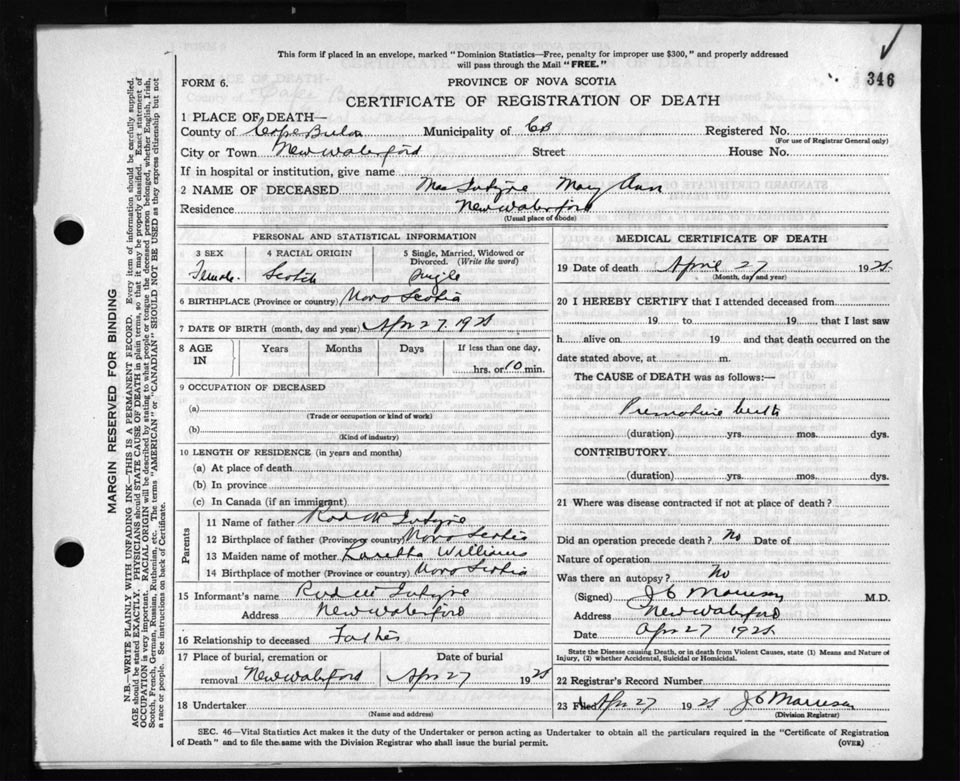 This form if placed in an envelope, marked "Dominion Statistics—Free, penalty for improper use $300," and properly addressed
will pass through the Mail "FREE."
346
FORM 6.
PROVINCE OF NOVA SCOTIA
CERTIFICATE OF REGISTRATION OF DEATH
1 PLACE OF DEATH—
County of Cape Breton Municipality of CB Registered No.
(For use of Registrar General only)
City or Town New Waterford Street House No.
If in hospital or institution, give name
2 NAME OF DECEASED Mac Intyre Mary Ann
Residence New Waterford
(Usual place of abode)
PERSONAL AND STATISTICAL INFORMATION
3 SEX 4 RACIAL ORIGIN 5 Single, Married, Widowed or
Divorced. (Write the word)
Female Scotch Single
6 BIRTHPLACE (Province or country) Nova Scotia
7 DATE OF BIRTH (month, day and year) Apr 27 192
8 AGE
IN
Years Months Days If less than one day,
hrs. or 10 min.
9 OCCUPATION OF DECEASED
(a)
(Trade or occupation or kind of work)
(b)
(Kind of industry)
10 LENGTH OF RESIDENCE (in years and months)
(a) At place of death
(b) In province
(c) In Canada (if an immigrant)
Parents
11 Name of father Rod Mc Intyre
12 Birthplace of father (Province or country) Nova Scotia
13 Maiden name of mother Williams
14 Birthplace of mother (Province or country) Nova Scotia
15 Informant's name Rod Mc Intyre
Address New Waterford
16 Relationship to deceased Father
17 Place of burial, cremation or Date of burial
removal New Waterford Apr 27 192
18 Undertaker
(Name and address)
MEDICAL CERTIFICATE OF DEATH
19 Date of death April 27 192
(Month, day and year)
20 I HEREBY CERTIFY that I attended deceased from
19 to 19 that I last saw
h alive on 19 and that death occurred on the
date stated above, at m.
The CAUSE of DEATH was as follows:—
Premature birth
(duration) yrs. mos. dys.
CONTRIBUTORY
(duration) yrs. mos. dys.
21 Where was disease contracted if not at place of death?
Did an operation precede death? No Date of
Nature of operation
Was there an autopsy? No
(Signed) J C Morrison M.D.
Address New Waterford
Date Apr 27 192
State the Disease causing Death, or in death from Violent Causes, state (1) Means and Nature of
Injury, (2) whether Accidental, Suicidal or Homicidal.
22 Registrar's Record Number
23 Filed Apr 27 192 J C Morrison
(Division Registrar)
SEC. 46—Vital Statistics Act makes it the duty of the Undertaker or person acting as Undertaker to obtain all the particulars required in the "Certificate of Registration
of Death" and to file the same with the Division Registrar who shall issue the burial permit. (OVER)
MARGIN RESERVED FOR BINDING
N.B.—WRITE PLAINLY WITH UNFADING INK—THIS IS A PERMANENT RECORD. Every item of information should be carefully supplied.
AGE should be stated EXACTLY. PHYSICIANS should STATE CAUSE OF DEATH in plain terms, so that it may be properly classified. Exact statement of
OCCUPATION is very important. RACIAL ORIGIN will be described by stating to what people or tongue the deceased person belonged, whether English, Irish,
Scotch, French, German, Russian, Ruthenian, etc. The terms "AMERICAN" or "CANADIAN" SHOULD NOT BE USED as they express citizenship but not
a race or people. See instructions on back of Certificate.